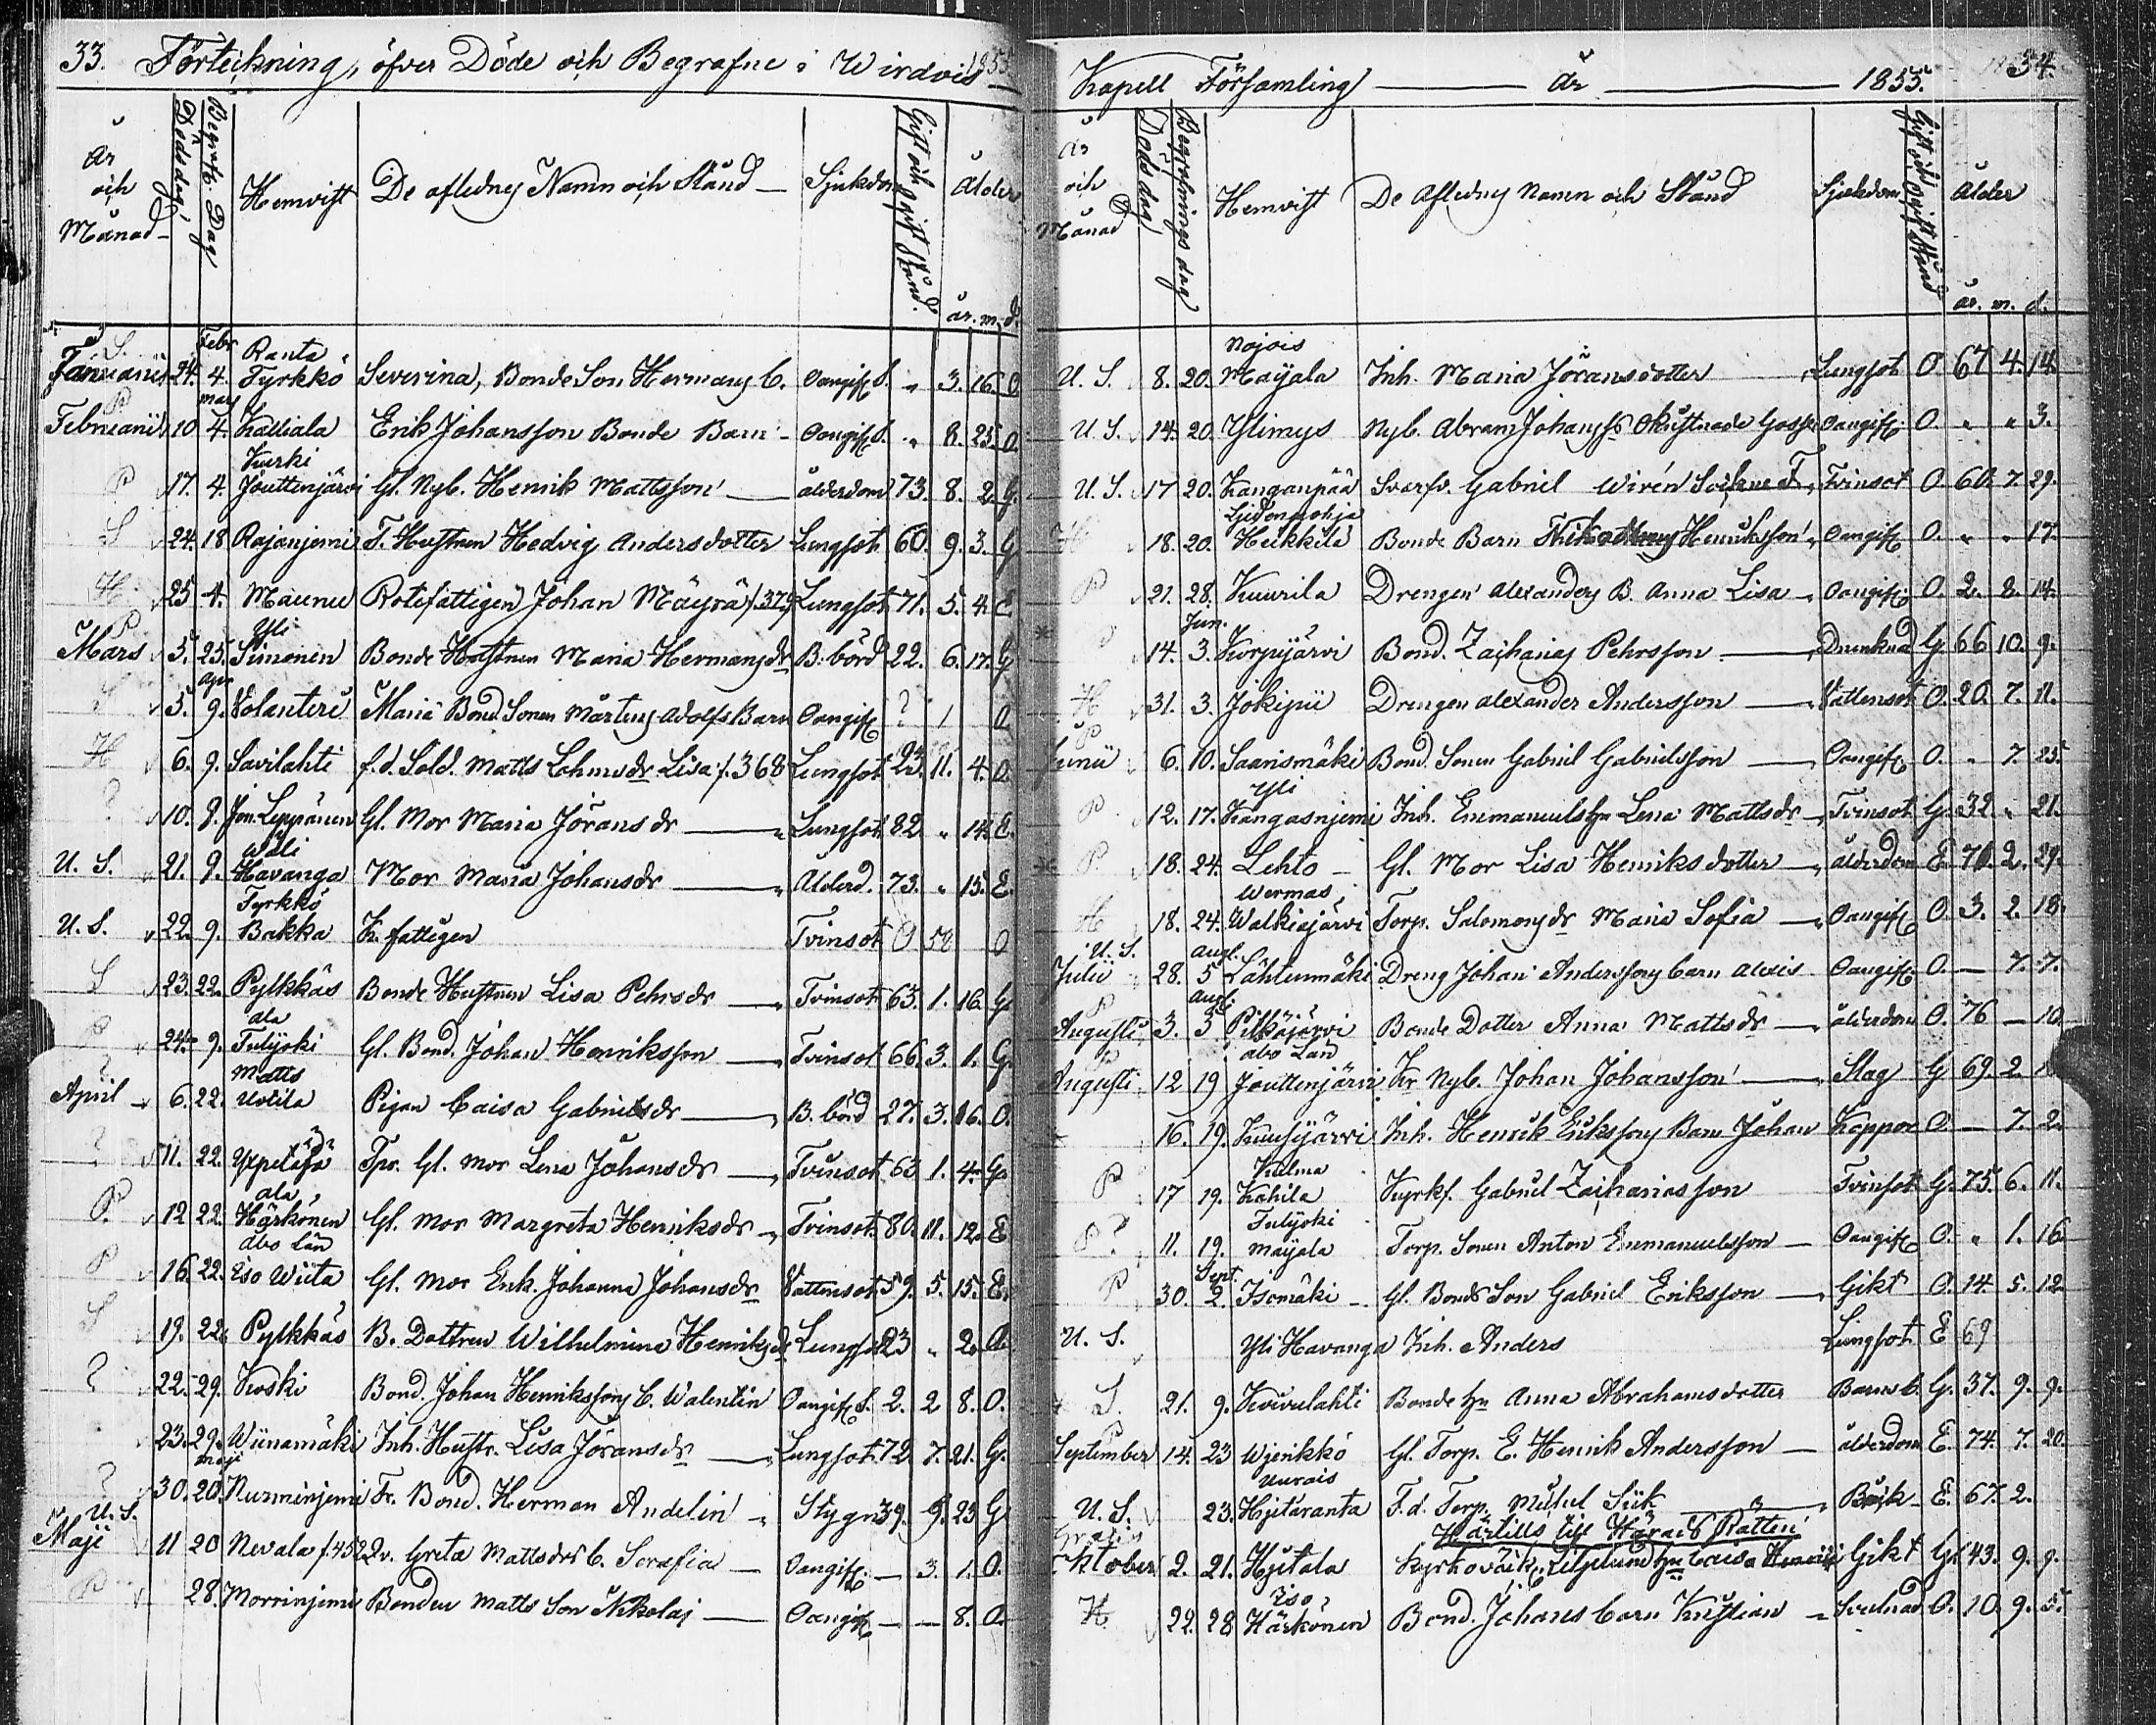 33. Förteckning, öfver Döde och Begrafne i Wirdois 1855
År och Månad Döds dag Begrafn. Dag Hemvist De aflednes Namn och Stånd Sjukdom Gift och ogift Stånd. Ålder
år. m. d.
S. Febr Ranta
Januarii 24. 4. Tyrkkö Severina, Bonde Son Hermans b. Oangifl. S. " 3. 16. O
P mars
Februarii 10 4. Kalliala Erik Johansson Bonde Barn - Oangifl. S. " 8. 25 O.
Kurki
P 17. 4. Jouttenjärvi Gl. Nyb. Henrik Mattsson ålderdom 73. 8. 2. G.
S 24. 18 Rajanjemi T. Hustrun Hedvig Andersdotter Lungsot 60. 9. 3. G
H. 25 4. Maunu Rotefattigen Johan Mäyrä f. 379 Lungsot 71. 5. 4. E
P Yli
Mars 5. 25. Simonen Bonde Hustrun Maria Hermansdr B. börd 22. 6. 17. G
apr
S 5. 9. Volanteri Maria Bond Sonen Mårtens Adolfs Barn Oangifl ? 1 O.
H 6. 9. Savilahti f.d. Sold. Matts Lohms dr Lisa f. 368 Lungsot 23. 11. 4. O.
? 10. 9. Jon. Leppänen Gl. Mor Maria Jöransdr Lungsot 82 " 14. E.
Wäli
U. S. 21. 9. Havanga Mor Maria Johansdr Ålderd. 73. " 15. E.
Tyrkkö
U. S. 22. 9. Bakka Kr. fattigen Tvinsot O 58 O
S 23. 22. Pylkkäs Bonde Hustrun Lisa Pehrsdr Tvinsot 63. 1. 16. G
ala
P 24. 9. Tulijoki Gl. Bond. Johan Henriksson Tvinsot 66. 3. 1. G.
? Matts
April 6. 22. Uotila Pigan Caisa Gabrielsdr B. börd 27. 3. 16. O.
? 11. 22. Tpr. Gl. Mor Lena Johansdr Tvinsot 63 1. 4. G
ala
P. 12 22. Härkönen Gl. Mor Margreta Henriksdr Tvinsot 80. 11. 12. E
Åbo Län
P 16. 22. Iso Wiita Gl. Mor Enk. Johanna Johansdr Vattensot 59. 5. 15. E.
S 19. 22. Pylkkäs B. Dottren Wilhelmina Henriksdr Lungsot 23 " 2. O.
? 22. 29. Koski Bond. Johan Henrikssons b. Walentin Oangifl S. 2. 2 8. O.
23. 29. Wiinamäki Inh. Hustr. Lisa Jöransdr Lungsot 72 7. 21. G.
maji
? 30. 20. Nurminjemi Fr. Bond. Herman Andelin Stygn 39. 9. 23 G
U. S.
Maji 11 20 Nevala f. 452 Greta Mattsdrs b. Serafia Oangifl. 3. 1. O.
P 28. Morrinjemi Bonden Matts Son Nikolaj Oangifl 8. O
Kapell Församling År 1855. 34.
År och Månad Döds dag Begrafnings dag Hemvist De Aflednes Namn och Stånd Sjukdom Gift och Ogift Stånd Ålder
år. m. d.
Nojois
U. S. 8. 20. Maijala Inh. Maria Jöransdotter Lungsot O. 67 4. 14.
U. S. 14. 20. Ylimys Nyb. Abram Johanss. Okristnade Gosse Oangifl. O. " " 3.
U. S. 17 20. Kanganpää Svarfv. Gabriel Wirén Tvinsot O. 60. 7. 29.
H 18. 20. Heikkilä Bonde Barn Henriksson Oangifl O. " " 17.
P 21. 28. Kuurila Drengen Alexanders B. Anna Lisa Oangifl. O. 2. 8. 14.
Jun.
P 14. 3. Korpijärvi Bond. Zacharias Pehrsson Drunknad G. 66 10. 9.
H 31. 3. Jokipii Drengen Alexander Andersson Vattensot O. 20. 7. 11.
P
Junii 6. 10. Saarismäki Bond. Sonen Gabriel Gabrielsson Oangifl. O. " 7. 25.
Yli
P 12. 17. Kangasnjemi Inh. Emmanuels hu Lena Mattsdr Tvinsot G. 32. " 21.
P. 18. 24. Lehto Gl. Mor Lisa Henriksdotter ålderdom E. 76. 2. 29.
Wermas
H 18. 24. Walkiajärvi Torp. Salomons dr Maria Sofia Oangifl O. 3. 2. 18.
U. S. Aug.
Julii 28. 5 Lähtenmäki Dreng Johan Anderssons barn Alexis Oangifl O. — 7. 7.
P Aug.
Augusti 3. 5 Pitkäjärvi Bonde Dotter Anna Mattsdr ålderdom O. 76 — 10.
P Åbo Län
Augusti. 12 19 Jouttenjärvi Kr. Nyb. Johan Johansson Slag G 69. 2.
16. 19. Kuusijärvi Inh. Henrik Erikssons Barn Johan Koppor O. — 7. 2.
Kulma
P 17 19. Kahila Kyrkf. Gabriel Zachariasson Tvinsot G. 75. 6. 11.
Tulijoki
P? 11. 19. Maijala Torp. Sonen Anton Emmanuelsson Oangifl O. " 1. 16
Sept.
P. 30. 2. Isomäki Gl. Bonde Son Gabriel Eriksson Gikt O. 14. 5. 12
U. S. Yli Havanga Inh. Anders Lungsot E 69
S. 21. 9. Kivilahti Bonde hu Anna Abrahamsdotter Barns b. G. 37. 9. 9.
P
September 14. 23 Wjerikkö Gl. Torp. E. Henrik Andersson ålderdom E. 74. 7. 20.
Uurais
U. S. 23. Hjetaranta F.d. Torp. Mickel Siik E. 67. 2.
Oktober 2. 21. Hjetala hu Caisa Gikt G. 43. 9. 9.
Iso
H 22. 28 Härkönen Bond. Johans barn Kristian O. 10. 9. 5.